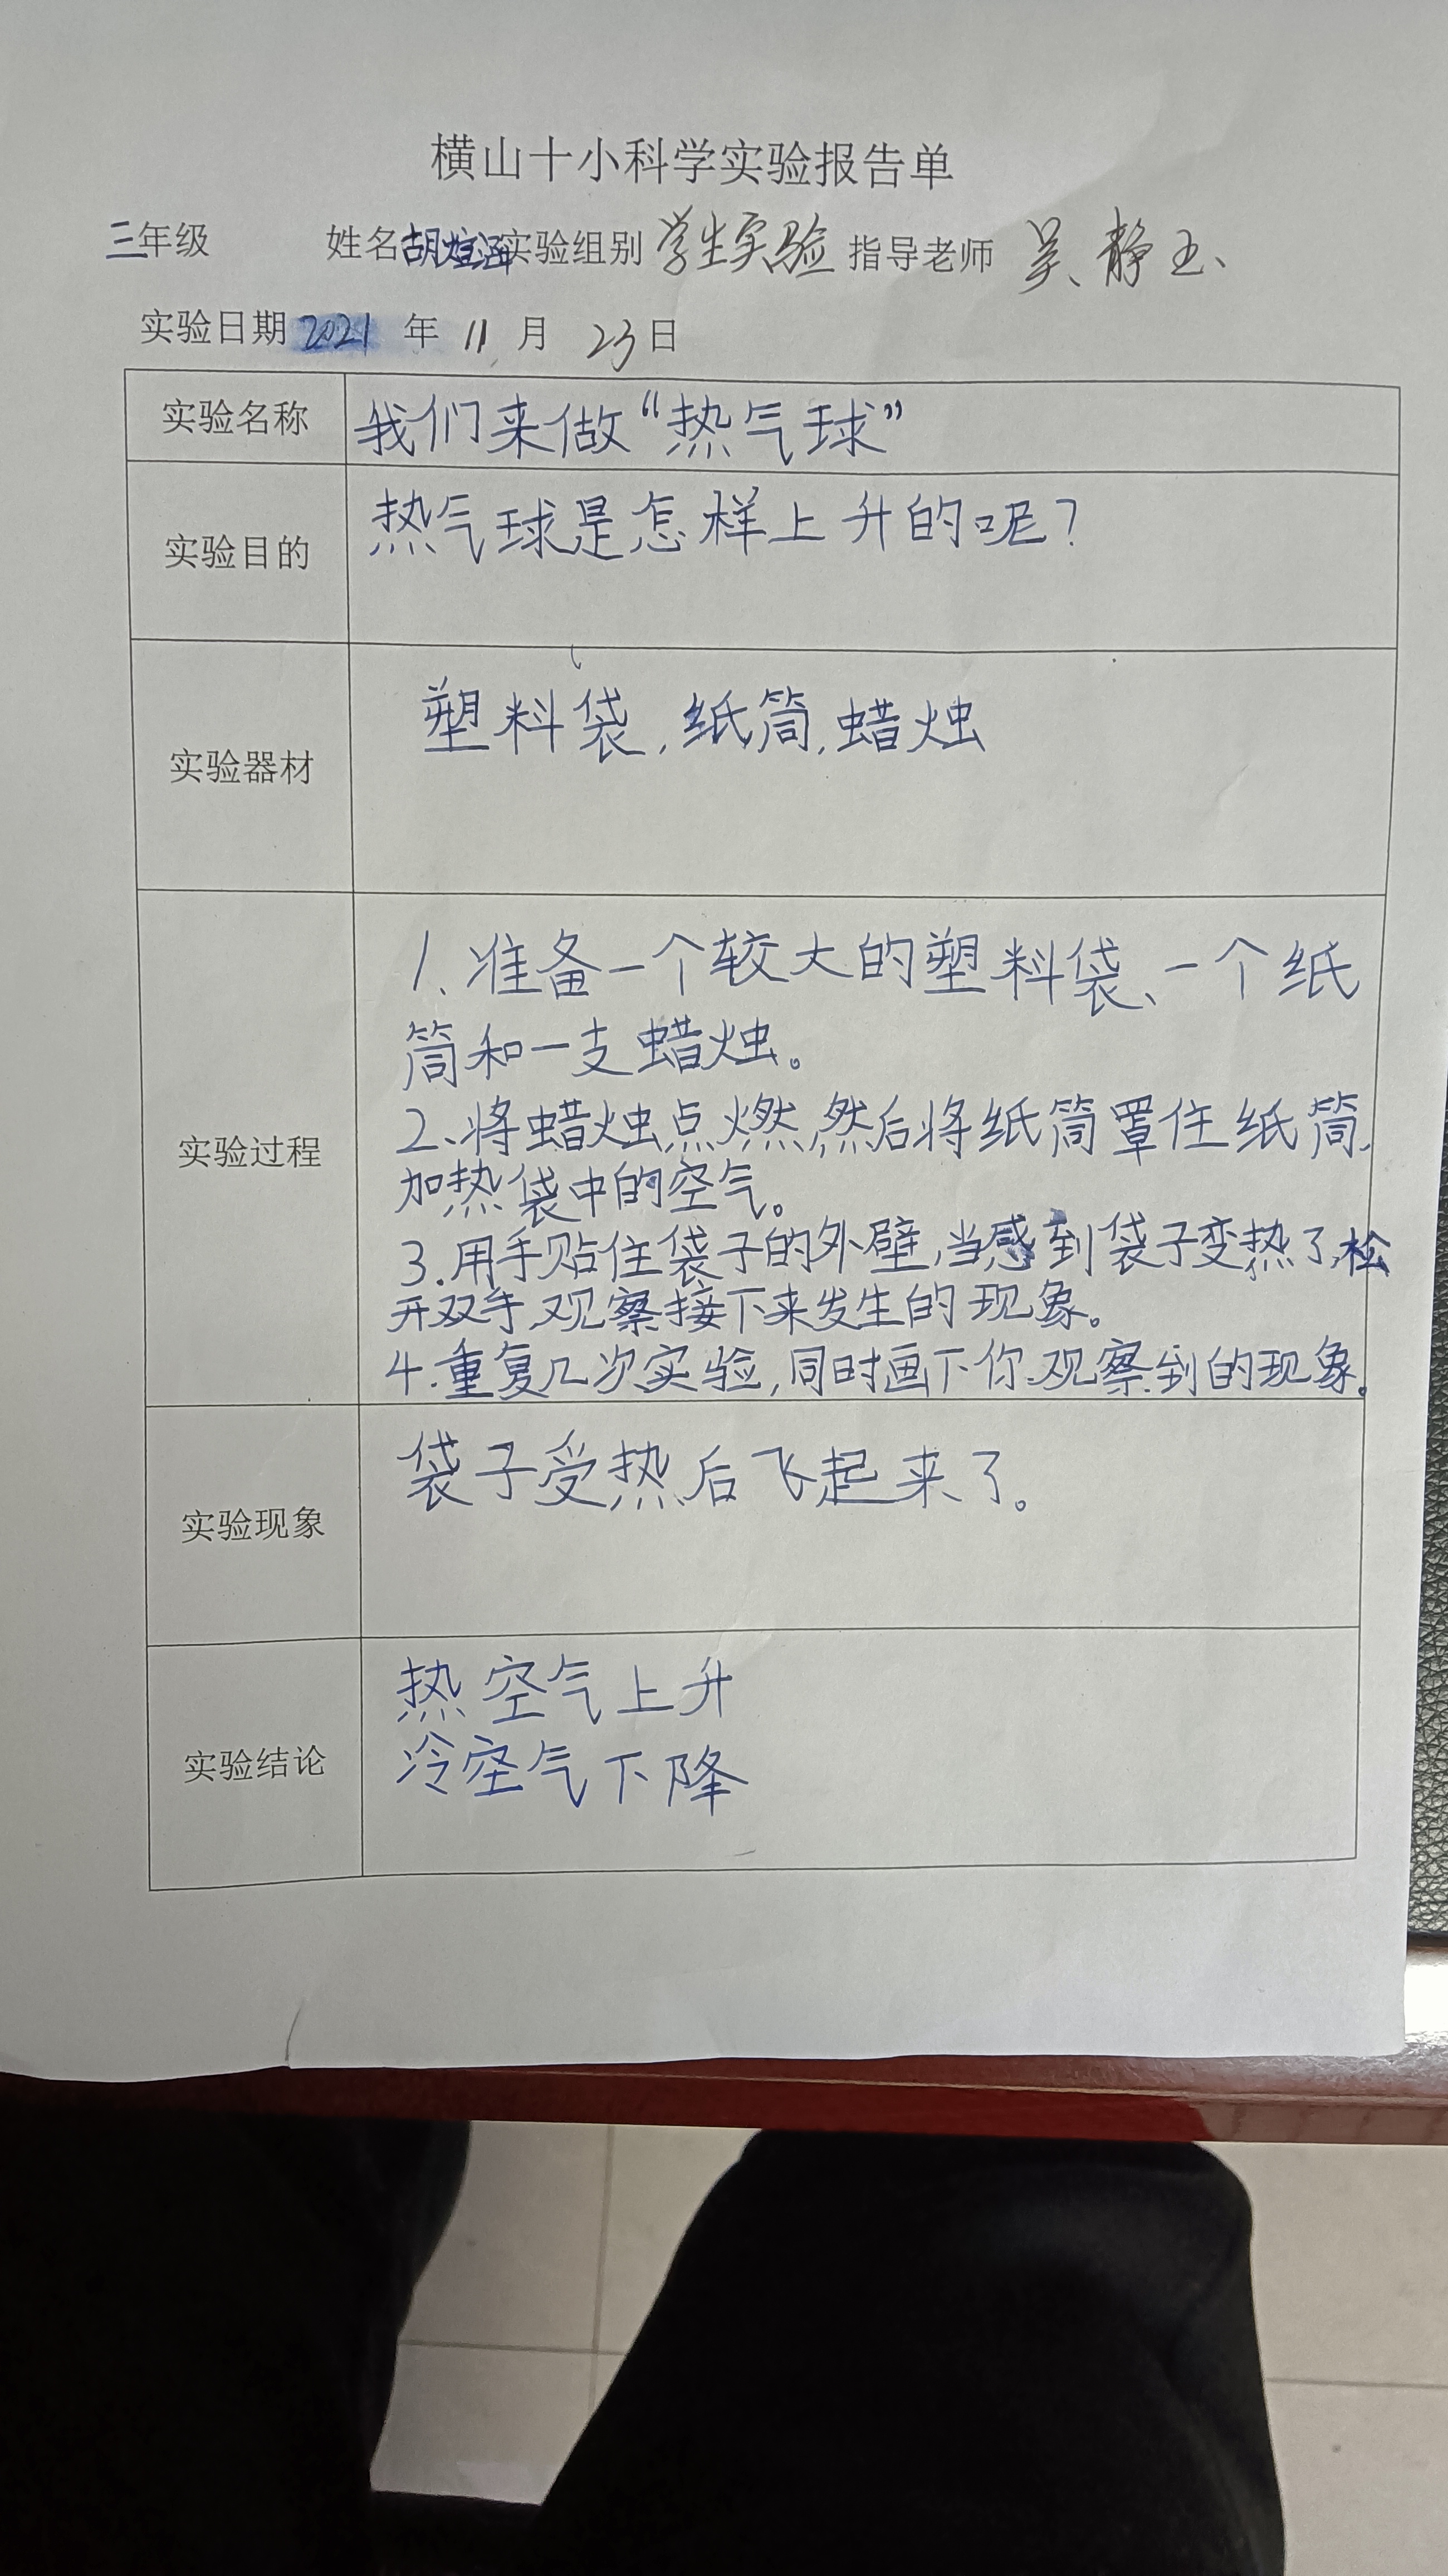 横山十小科学实验报告单
三年级 姓名胡煊涵实验组别 学生实验 指导老师 吴静玉
实验日期 2021 年 11 月 23日
实验名称 我们来做“热气球”
实验目的 热气球是怎样上升的呢?
实验器材 塑料袋,纸筒,蜡烛
实验过程
1、准备一个较大的塑料袋、一个纸
筒和一支蜡烛。
2、将蜡烛点燃,然后将纸筒罩住纸筒,
加热袋中的空气。
3.用手贴住袋子的外壁,当感到袋子变热了,松
开双手,观察接下来发生的现象。
4.重复几次实验,同时画下你观察到的现象。
实验现象 袋子受热后飞起来了。
实验结论
热空气上升
冷空气下降